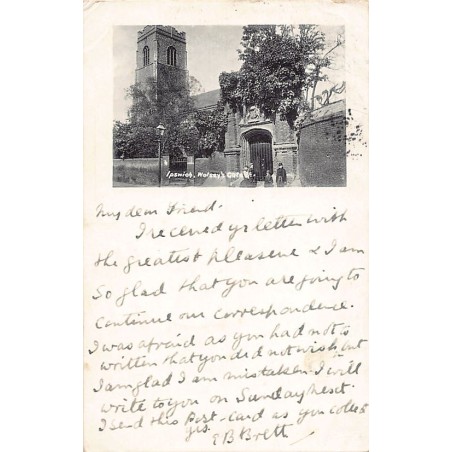 Ipswich, Wolsey's Gate.
My dear Friend.
I received yr letter with
the greatest pleasure & I am
so glad that you are going to
continue our correspondence.
I was afraid as you had not
written that you did not wish, but
I am glad I am mistaken. I will
write to you on Sunday next.
I send this Post-card as you collect
E B Brett